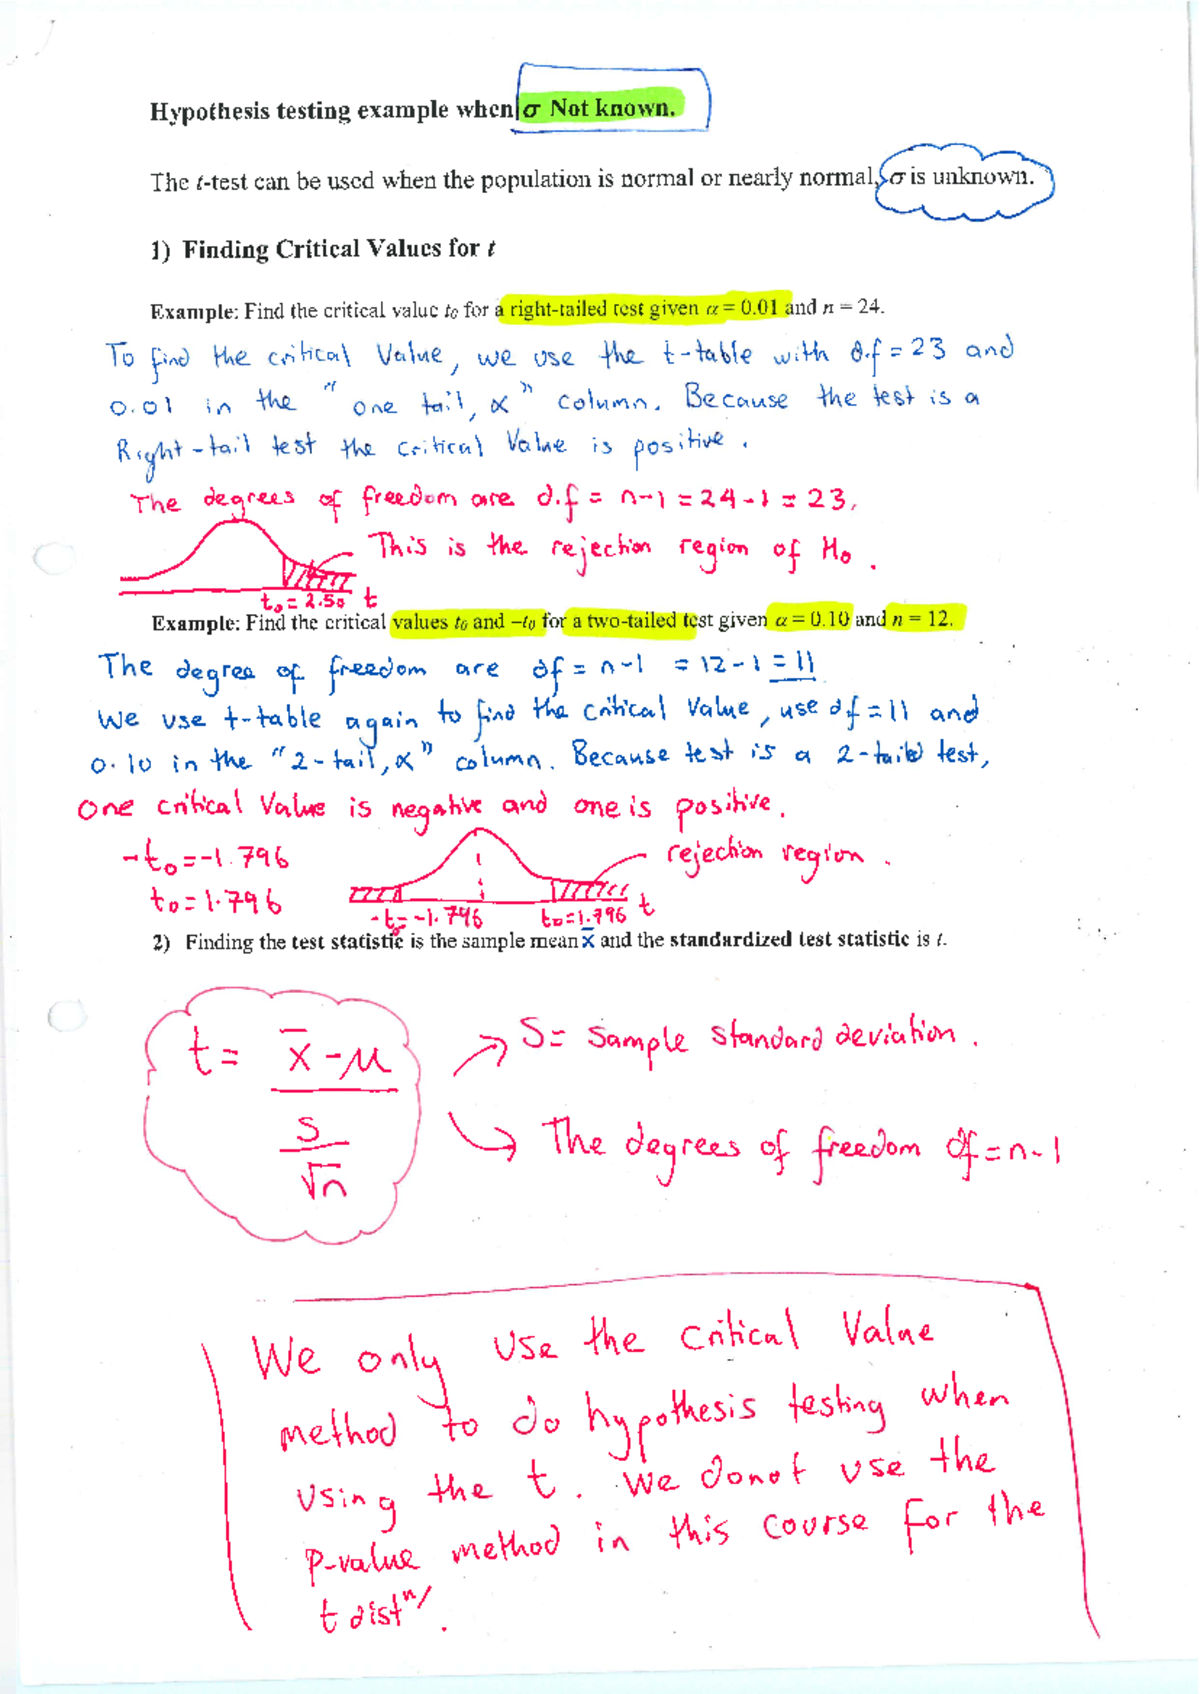 Hypothesis testing example when σ Not known.
The t-test can be used when the population is normal or nearly normal, σ is unknown.
1) Finding Critical Values for t
Example: Find the critical value t₀ for a right-tailed test given α = 0.01 and n = 24.
To find the critical Value, we use the t-table with d.f = 23 and
0.01 in the " one tail, α " column. Because the test is a
Right-tail test the critical Value is positive.
The degrees of freedom are d.f = n-1 = 24-1 = 23.
This is the rejection region of H₀.
t₀ = 2.50 t
Example: Find the critical values t₀ and –t₀ for a two-tailed test given α = 0.10 and n = 12.
The degree of freedom are df = n-1 = 12-1 = 11
We use t-table again to find the critical Value, use df = 11 and
0.10 in the "2-tail, α" column. Because test is a 2-tailed test,
One critical Value is negative and one is positive.
-t₀ = -1.796
rejection region.
t₀ = 1.796
-t₀ = -1.796 t₀ = 1.796 t
2) Finding the test statistic is the sample mean x̄ and the standardized test statistic is t.
t = x̄ - μ
S
√n
S = Sample standard deviation.
The degrees of freedom df = n-1
We only use the critical Value
method to do hypothesis testing when
using the t. We donot use the
P-value method in this course for the
t distⁿ/.